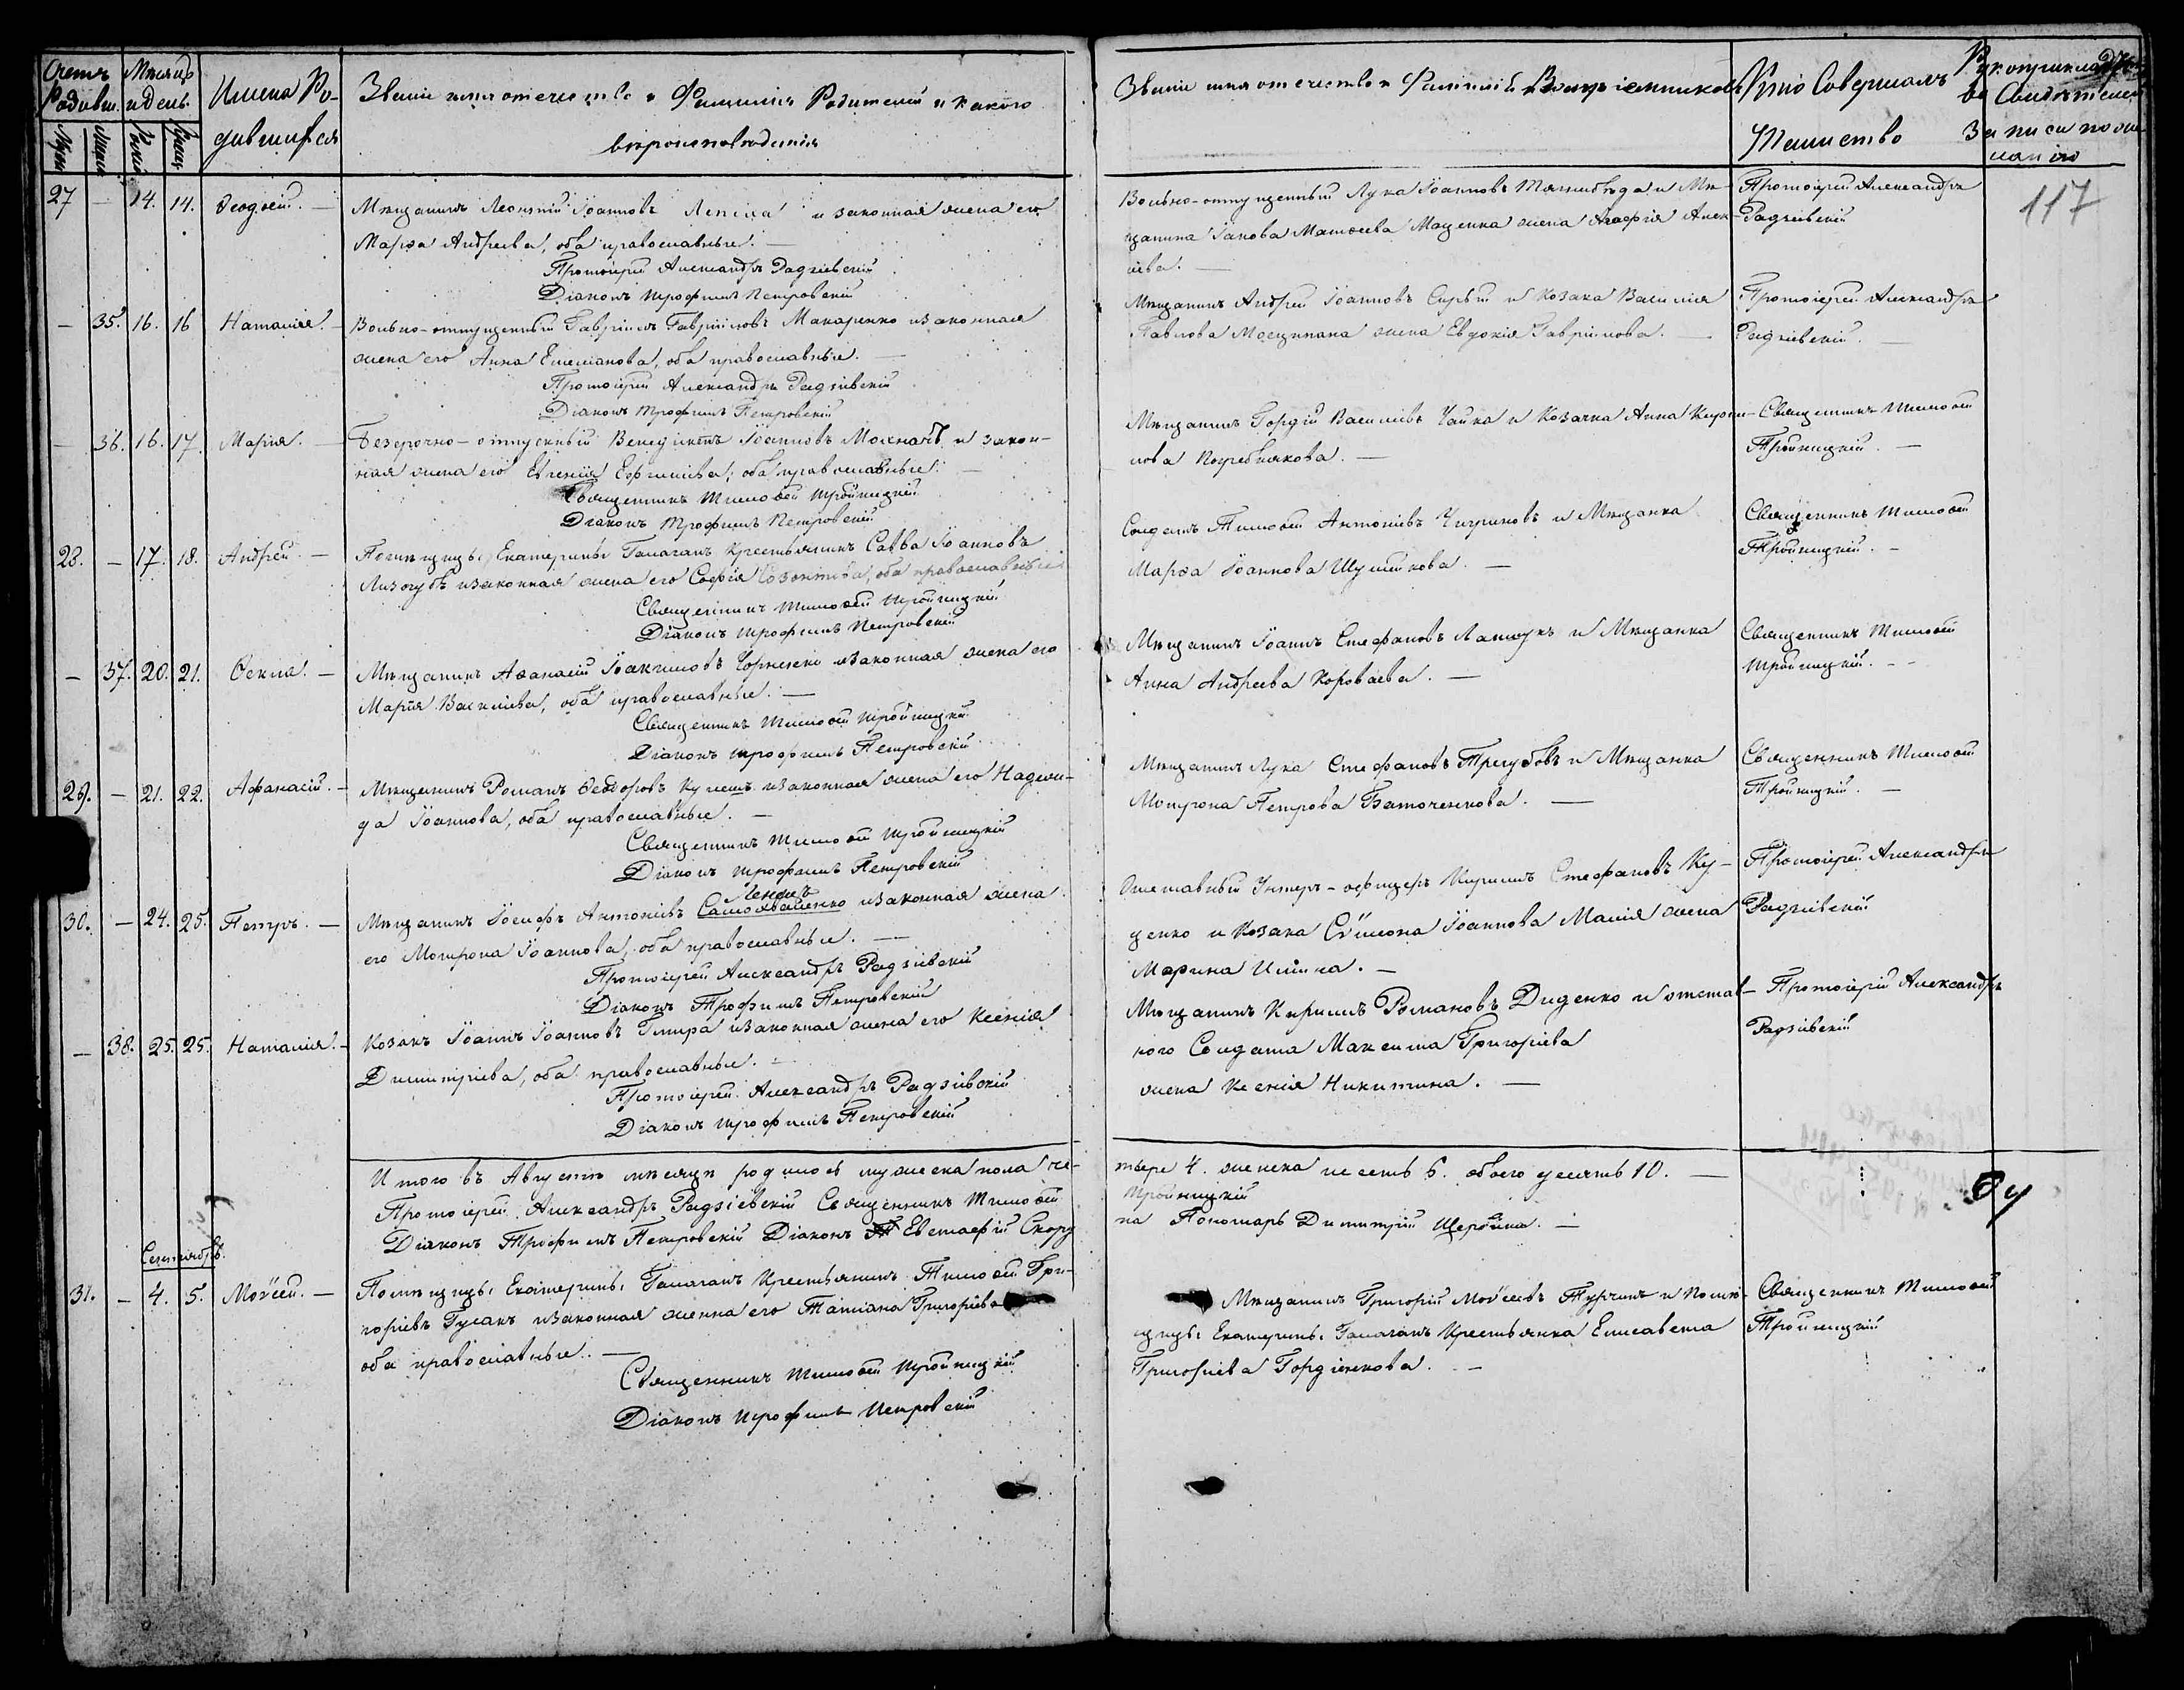 Счетъ Родивш. Мѣсяцъ и день Имена Ро-
дившихся
Званіе имя отечество и Фамилія Родителей и какого
вѣроисповѣданія
27 — 14. 14. Ѳеодосій. — Мѣщанинъ Леонтій Іоанновъ Лепеха и законная жена его
Марѳа Андреева, оба православные. —
Протоіерей Александръ Радзіевскій
Діаконъ Трофимъ Петровскій
— 35. 16. 16 Наталія. — Вольно-отпущенный Гавріилъ Гавріиловъ Макаренко и законная
жена его Анна Емеліанова, оба православные. —
Протоіерей Александръ Радзіевскій
Діаконъ Трофимъ Петровскій
— 36. 16. 17. Марія. — Безсрочно-отпускный Венедиктъ Іоанновъ и закон-
ная жена его Евгенія Ефимиева, оба православные. —
Священникъ Тимоѳей Тройницкій
Діаконъ Трофимъ Петровскій
28. — 17. 18. Андрей. — Помѣщицы Екатерины Галаганъ Крестьянинъ Савва Іоанновъ
Лизогубъ и законная жена его Софія оба православные
Священникъ Тимоѳей Тройницкій
Діаконъ Трофимъ Петровскій
— 37. 20. 21. Ѳекла. — Мѣщанинъ Аѳанасій Іоакимовъ и законная жена его
Марія Василіева, оба православные. —
Священникъ Тимоѳей Тройницкій
Діаконъ Трофимъ Петровскій
29. — 21. 22. Афанасій. — Мѣщанинъ Романъ Ѳеодоровъ Кулешъ и законная жена его Надеж-
да Іоаннова, оба православные. —
Священникъ Тимоѳей Тройницкій
Діаконъ Трофимъ Петровскій
30. — 24. 25. Петръ. — Мѣщанинъ Іосифъ Антоніевъ и законная жена
его Мотрона Іоаннова, оба православные. —
Протоіерей Александръ Радзіевскій
Діаконъ Трофимъ Петровскій
— 38. 25. 25. Наталія. — Козакъ Іоаннъ Іоанновъ и законная жена его Ксенія
Димитріева, оба православные. —
Протоіерей Александръ Радзіевскій
Діаконъ Трофимъ Петровскій
Итого въ Августѣ мѣсяцѣ родилось мужеска пола че-
Протоіерей Александръ Радзіевскій Священникъ Тимоѳей
Діаконъ Трофимъ Петровскій Діаконъ Евстафій Скору
Сентябрь.
31. — 4. 5. Моѵсей. — Помѣщицы Екатерины Галаганъ Крестьянинъ Тимоѳей Гри-
горіевъ Гусакъ и законная женна его Татіана Григоріева
оба православные. —
Священникъ Тимоѳей Тройницкій
Діаконъ Трофимъ Петровскій
Званіе имя отечество и Фамилія Воспріемниковъ
Кто Совершалъ
Таинство
Рукоприкладст-
во Свидѣтелей
Записи по же-
ланію
117
Вольно-отпущенный Лука Іоанновъ Тягнибѣда и Мѣ-
щанина Іакова Матѳеева Маценка жена Агафія Алек-
ѣева. —
Протоіерей Александръ
Радзіевскій
Мѣщанинъ Андрей Іоанновъ Сирый и Козака Василія
Павлова жена Евдокія Гавріилова. —
Протоіерей Александръ
Радзіевскій. —
Мѣщанинъ Гордій Василіевъ Чайка и Козачка Анна Кирил-
лова Погребнякова. —
Священникъ Тимоѳей
Тройницкій. —
Солдатъ Тимоѳей Антоніевъ Чигриновъ и Мѣщанка
Марѳа Іоаннова Шулейкова. —
Священникъ Тимоѳей
Тройницкій. —
Мѣщанинъ Іоаннъ Стефановъ Лащукъ и Мѣщанка
Анна Андреева Короваева. —
Священникъ Тимоѳей
Тройницкій. —
Мѣщанинъ Лука Стефановъ Трегубовъ и Мѣщанка
Мотрона Петрова Баточенкова. —
Священникъ Тимоѳей
Тройницкій. —
Отставный Унтеръ-офицеръ Кирилъ Стефановъ Ку-
ценко и Козака Сѵмеона Іоаннова Малія жена
Марина Ильина. —
Протоіерей Александръ
Радзіевскій
Мѣщанинъ Кирилъ Романовъ Диденко и отстав-
ного Солдата Максима Григоріева
жена Ксенія Никитина. —
Протоіерей Александръ
Радзіевскій
тыре 4. женска шесть 6. обоего десять 10. —
Тройницкій
па Пономарь Димитрій Щербина. —
Мѣщанинъ Григорій Моѵсеевъ Турчинъ и Помѣ-
щицы Екатерины Галаганъ Крестьянка Елисавета
Григоріева Гордіенкова. —
Священникъ Тимоѳей
Тройницкій